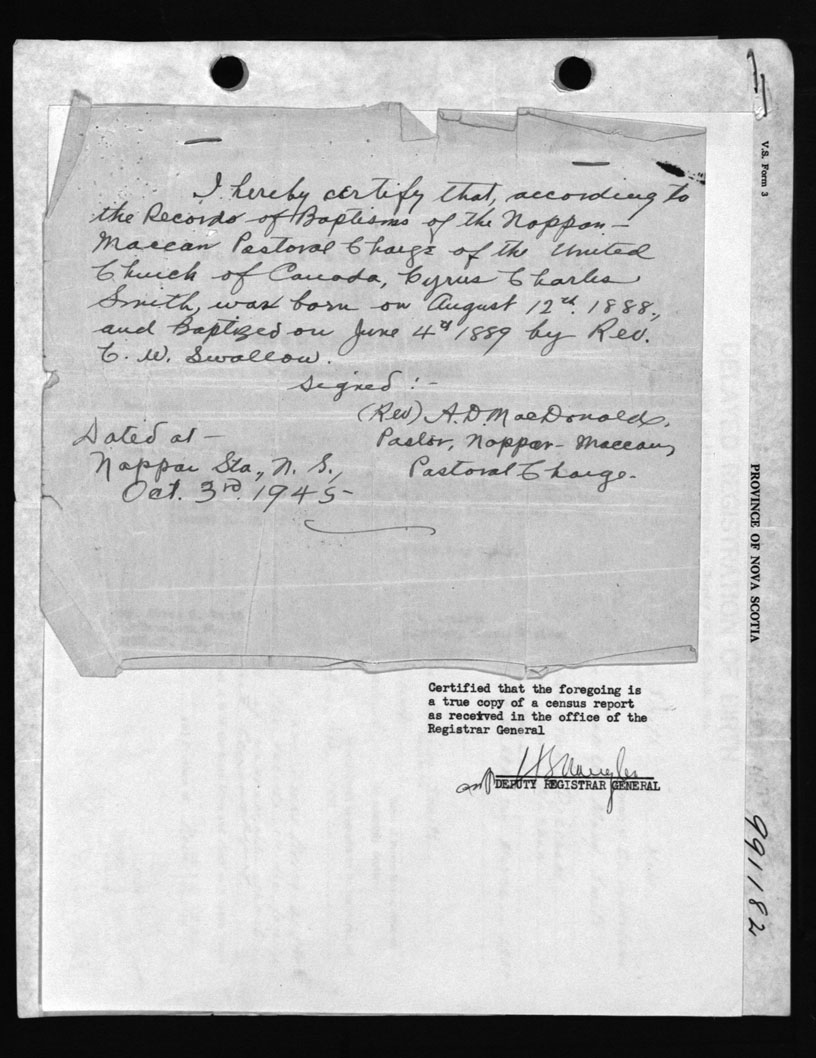 I hereby certify that, according to
the Records of Baptisms of the Nappan -
Maccan Pastoral Charge of the United
Church of Canada, Cyrus Charles
Smith, was born on August 12th. 1888.,
and Baptized on June 4th 1889 by Rev.
C. W. Swallow.
Signed : -
(Rev) A. D. MacDonald,
Pastor, Nappan - Maccan,
Pastoral Charge.
Dated at -
Nappan Sta., N. S.,
Oct. 3rd. 1945 -
Certified that the foregoing is
a true copy of a census report
as received in the office of the
Registrar General
DEPUTY REGISTRAR GENERAL
V.S. Form 3
PROVINCE OF NOVA SCOTIA
991182